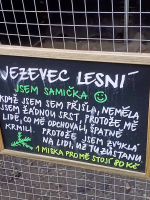 JEZEVEC LESNÍ
JSEM SAMIČKA
KDYŽ JSEM SEM PŘIŠLA, NEMĚLA
JSEM ŽÁDNOU SRST, PROTOŽE MĚ
LIDÉ, CO MĚ ODCHOVALI, ŠPATNĚ
KRMILI. PROTOŽE JSEM ZVYKLÁ
NA LIDI, UŽ TU ZŮSTANU.
1 MISKA PRO MĚ STOJÍ 80 KČ